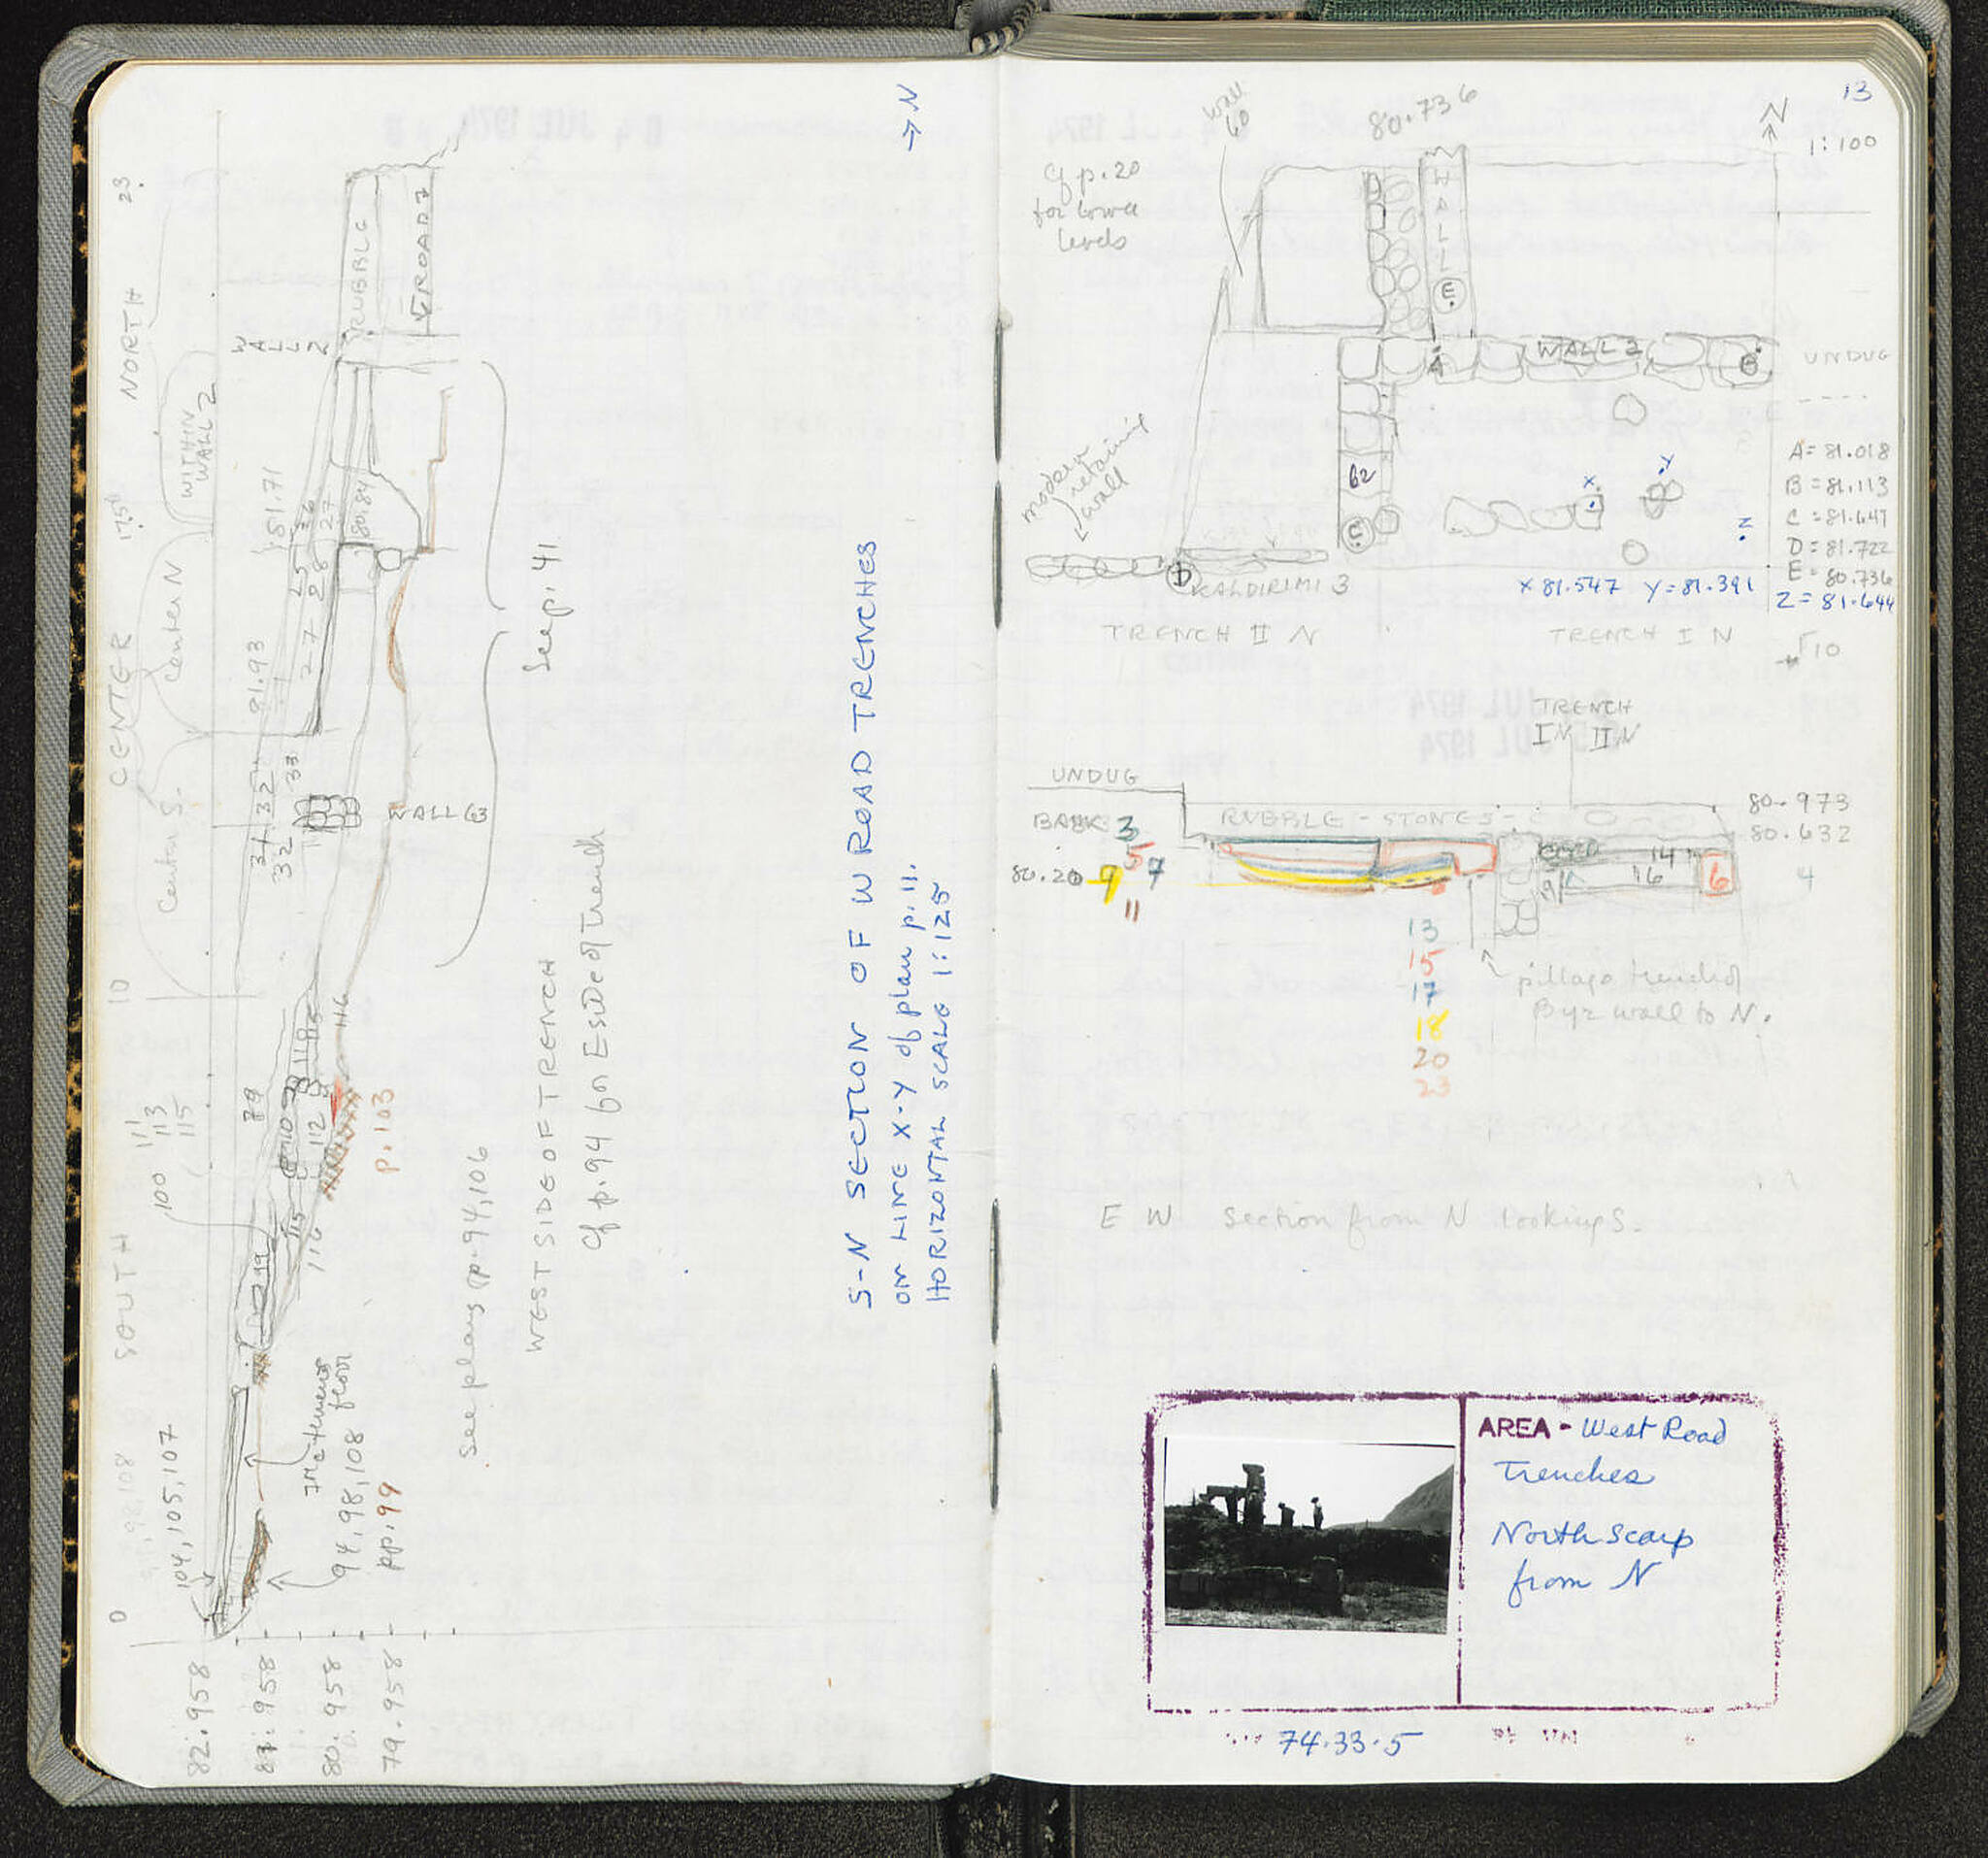 23
NORTH
WITHIN
WALL 2
17.5
Center N
CENTER
Center S.
10
SOUTH
0
111
113
115
100
104, 105, 107
WALL 2
RUBBLE
ROAD 7
81.71
26
25
27
28
80.84
27
81.93
33
32
31
32
WALL 63
79
118
115
116
109
112
19
115
116
p. 103
94, 98, 108 floor
pp. 99
82.958
81.958
80.958
79.958
See p. 41
See plans pp. 94, 106
WEST SIDE OF TRENCH
Cf p. 94 for E side of Trench
→ N
S-N SECTION OF W ROAD TRENCHES
ON LINE X-Y of plan p. 11.
HORIZONTAL SCALE 1:125
13
N
1:100
Cf p. 20
for lower
levels
Wall
60
80.736
WALL 1
E
A
WALL 2
B
UNDUG
62
C
D
X
Y
Z
modern
retaining
wall
KALDIRIMI 3
A = 81.018
B = 81.113
C = 81.647
D = 81.722
E = 80.736
X 81.547 Y = 81.391 Z = 81.644
TRENCH II N
TRENCH I N
TRENCH
IN IIN
UNDUG
BANK
RUBBLE - STONES -
80.973
80.632
80.20
3
5
7
9
11
14
16
9
6
4
13
15
17
18
20
23
pillage trench of
Byz wall to N.
E W Section from N looking S.
AREA - West Road
Trenches
North scarp
from N
74.33.5